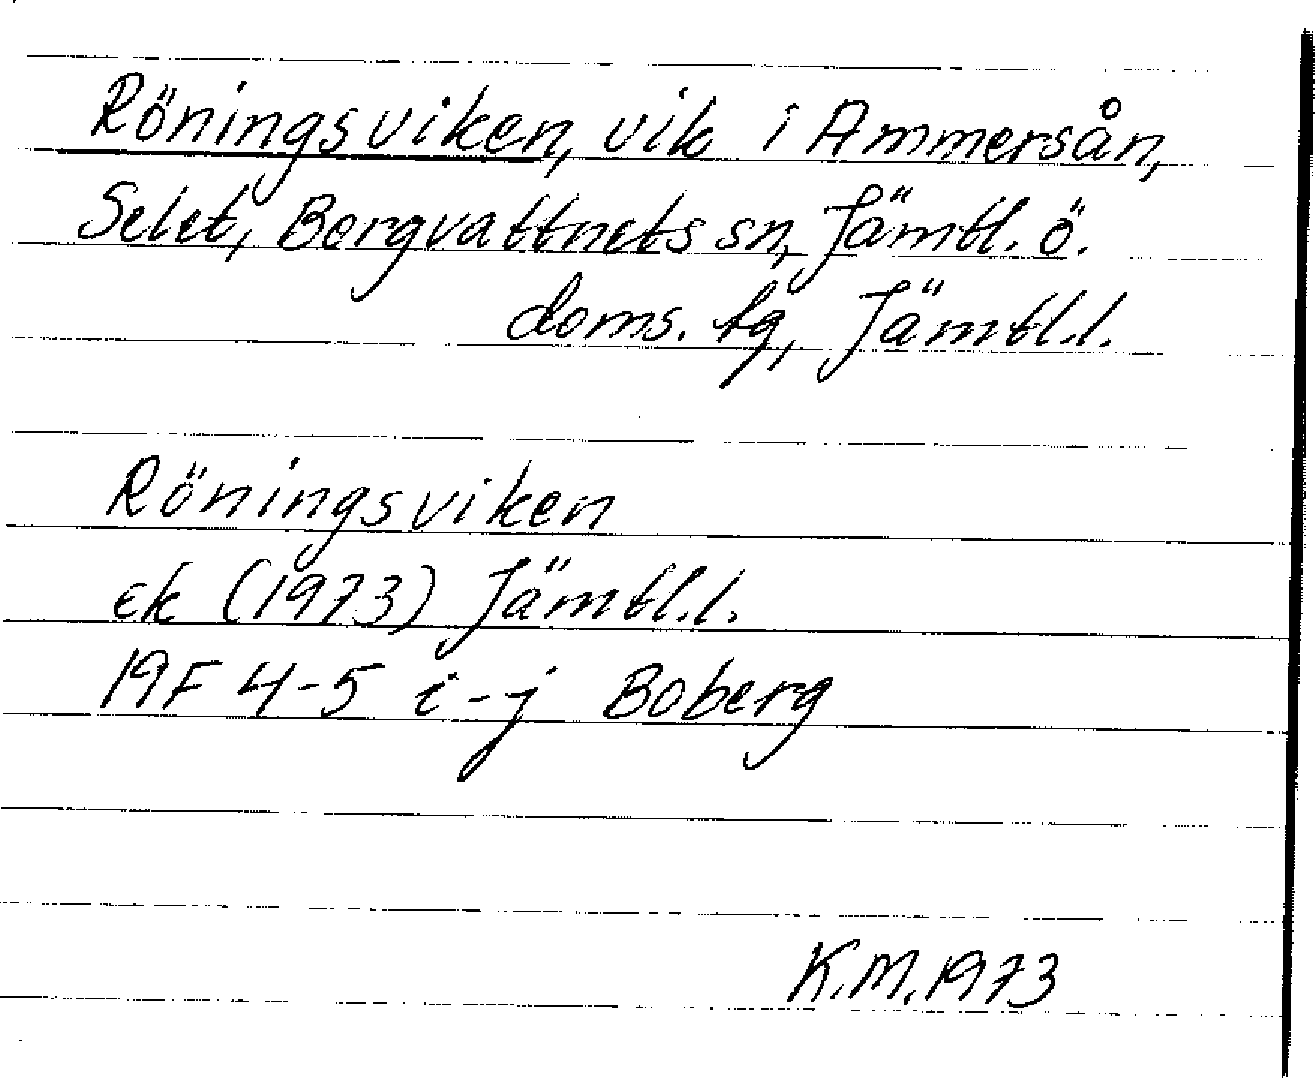 Röningsviken, vik i Ammersån,
Selet, Borgvattnets sn, Jämtl. ö.
doms. tg, Jämtl.l.
Röningsviken
ek (1973) Jämtl.l.
19F 4-5 i-j Boberg
K.M. 1973